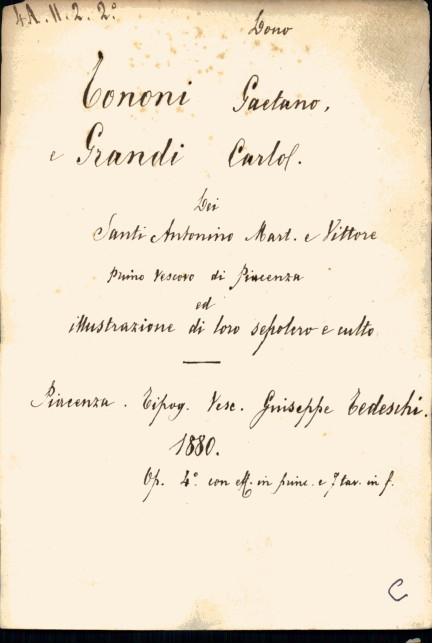 4A.II.2.2°
Dono
Tononi Gaetano,
e Grandi Carlo.
Dei
Santi Antonino Mart. e Vittore
primo Vescovo di Piacenza
ed
illustrazione di loro sepolcro e culto
Piacenza. Tipog. Vesc. Giuseppe Tedeschi.
1880.
Op. 4° con in princ. e 7 tav. in f.
C